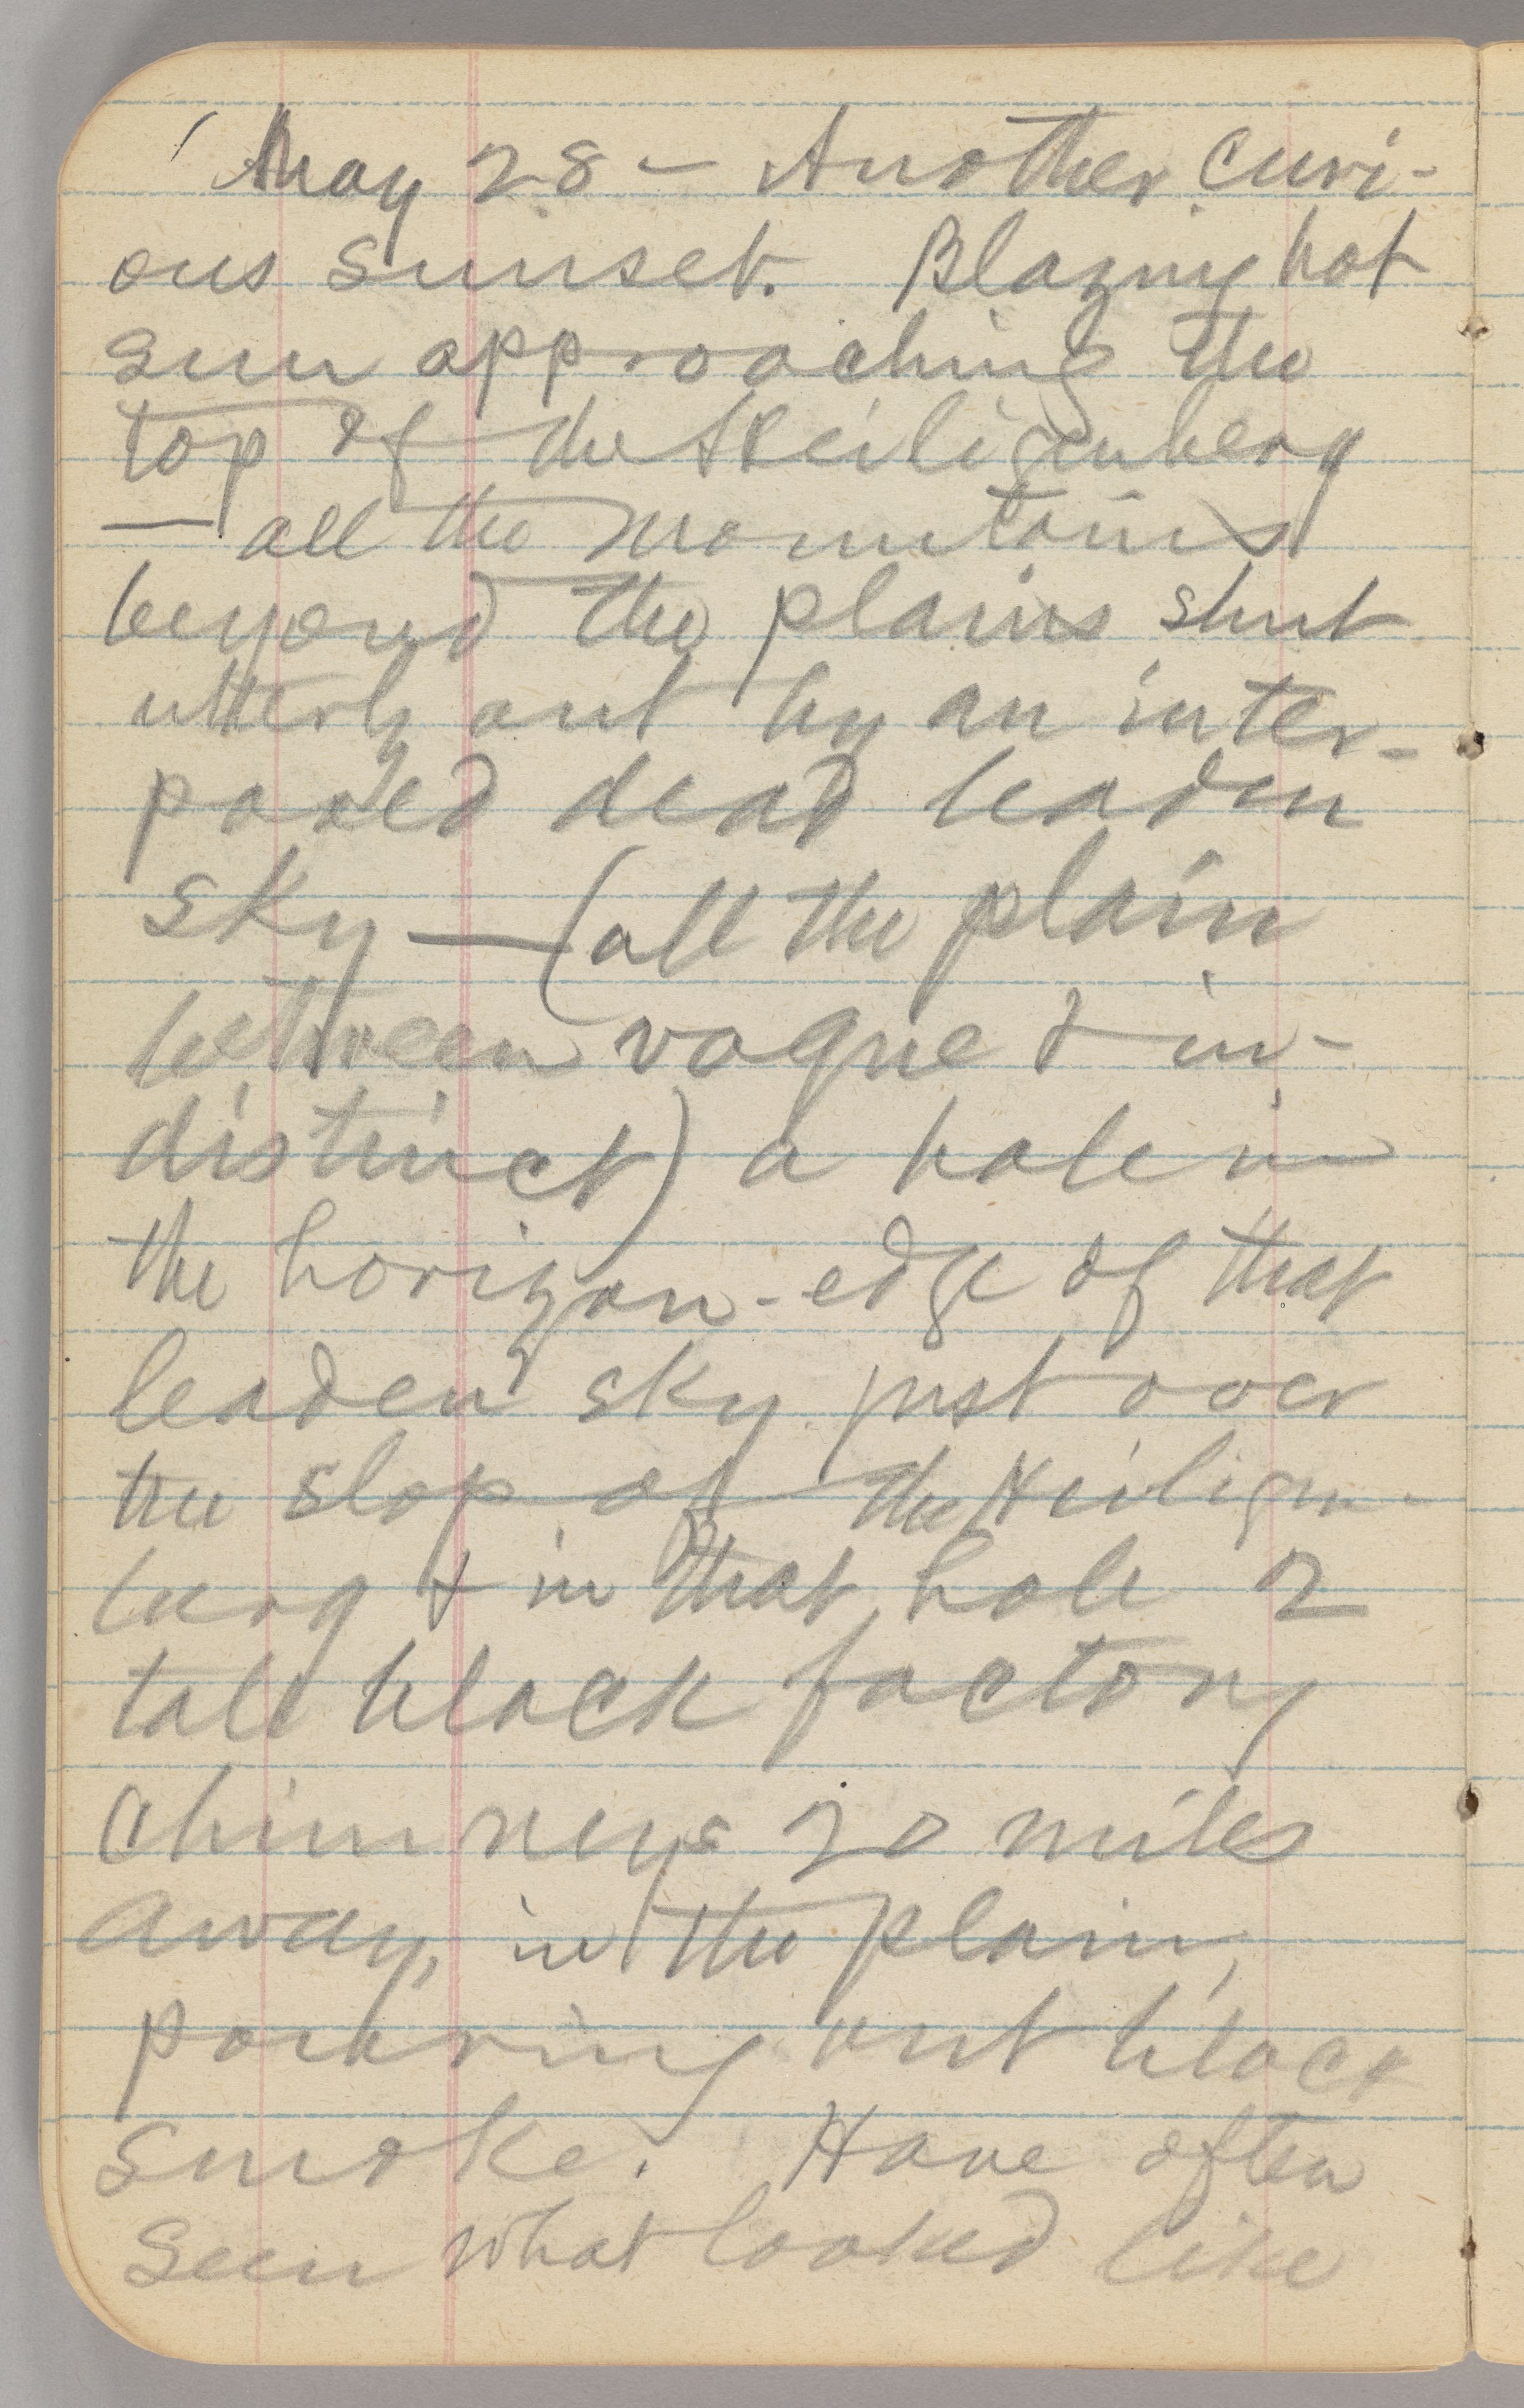 May 28 – Another curi-
ous sunset. Blazing hot
sun approaching the
top of the Heiligenberg
— all the mountains
beyond the plains shut
utterly out by an inter-
posed dead leaden
sky — (all the plain
between vague & in-
distinct) a hole in
the horizon-edge of that
leaden sky just over
the slop of the Heiligen-
berg & in that hole 2
tall black factory
chimneys 20 miles
away, in the plain,
pouring out black
smoke. Have often
seen what looked like